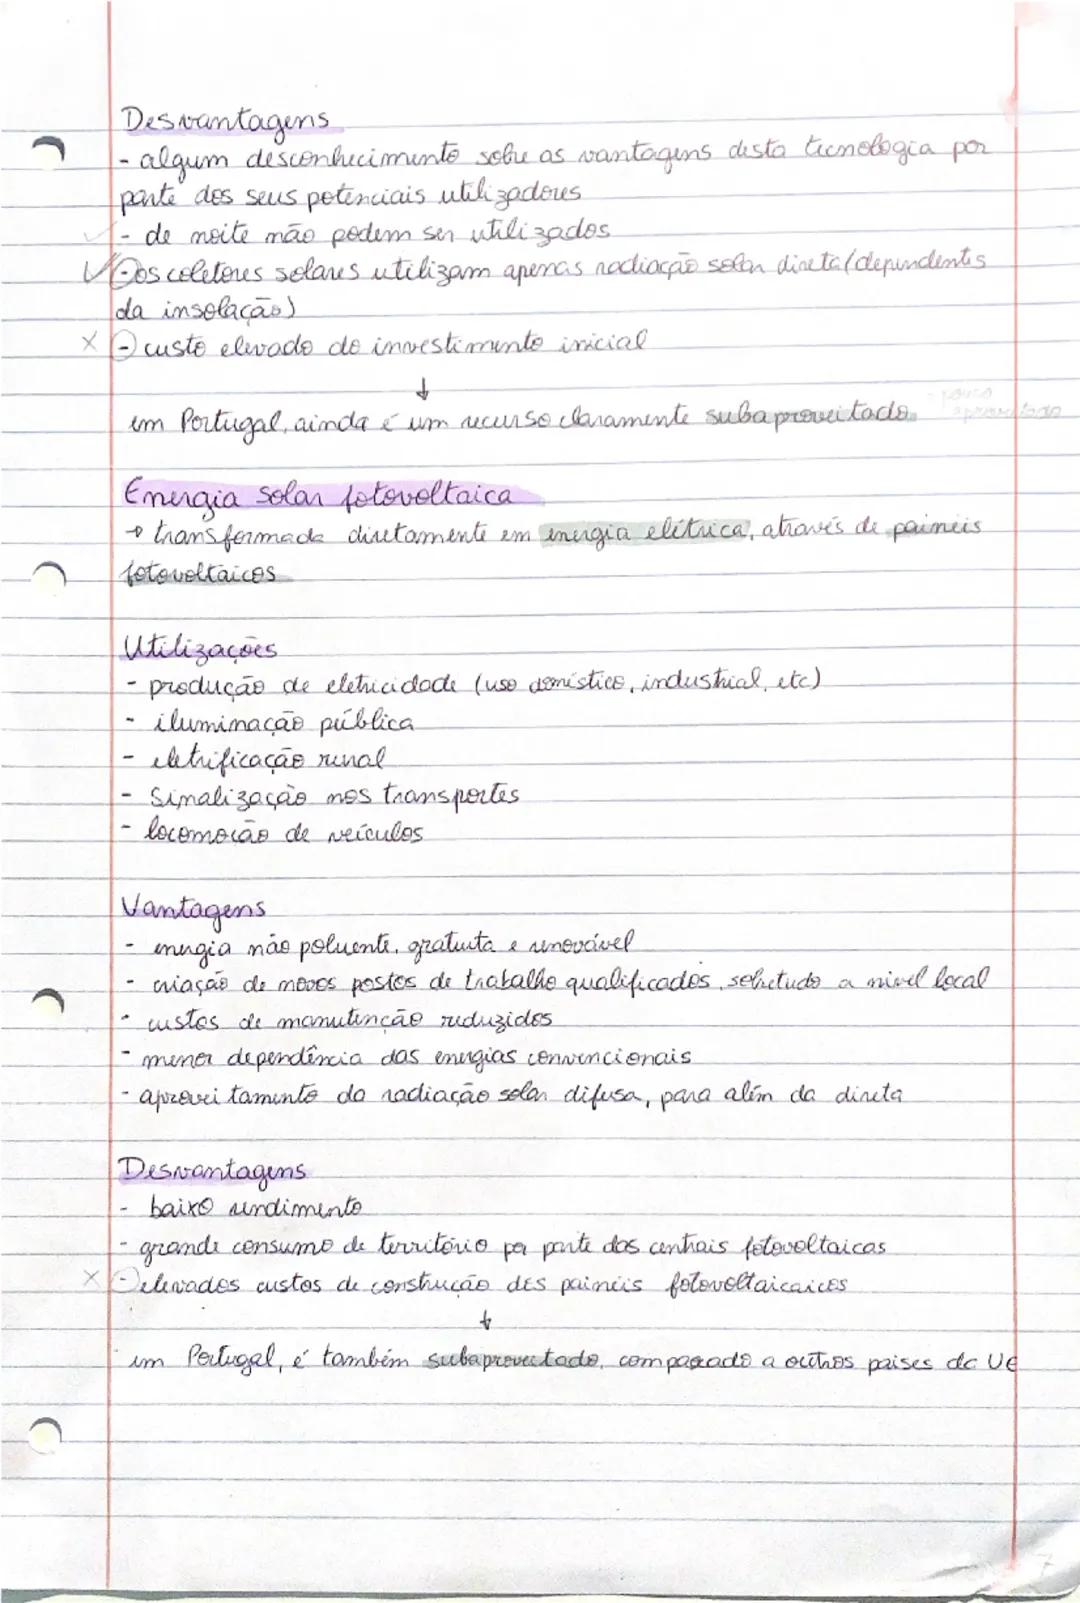 Desvantagens
- algum desconhecimento sobre as vantagens desta tecnologia por
parte dos seus potenciais utilizadores
- de noite não podem ser utilizados
✓ - os coletores solares utilizam apenas radiação solar direta (dependentes
da insolação)
X - custo elevado do investimento inicial
↓
em Portugal, ainda é um recurso claramente subaproveitado.
pouco
aproveitado
Energia solar fotovoltaica
→ transformada diretamente em energia elétrica, através de painéis
fotovoltaicos
Utilizações
- produção de eletricidade (uso doméstico, industrial, etc)
- iluminação pública
- eletrificação rural
- Sinalização nos transportes
- locomoção de veículos
Vantagens
- energia não poluente, gratuita e renovável
- criação de novos postos de trabalho qualificados, sobretudo a nível local
- custos de manutenção reduzidos
- menor dependência das energias convencionais
- aproveitamento da radiação solar difusa, para além da direta
Desvantagens
- baixo rendimento
- grande consumo de território por parte das centrais fotovoltaicas
X - elevados custos de construção dos painéis fotovoltaicaicos
↓
em Portugal, é também subaproveitado, comparado a outros países da UE
7